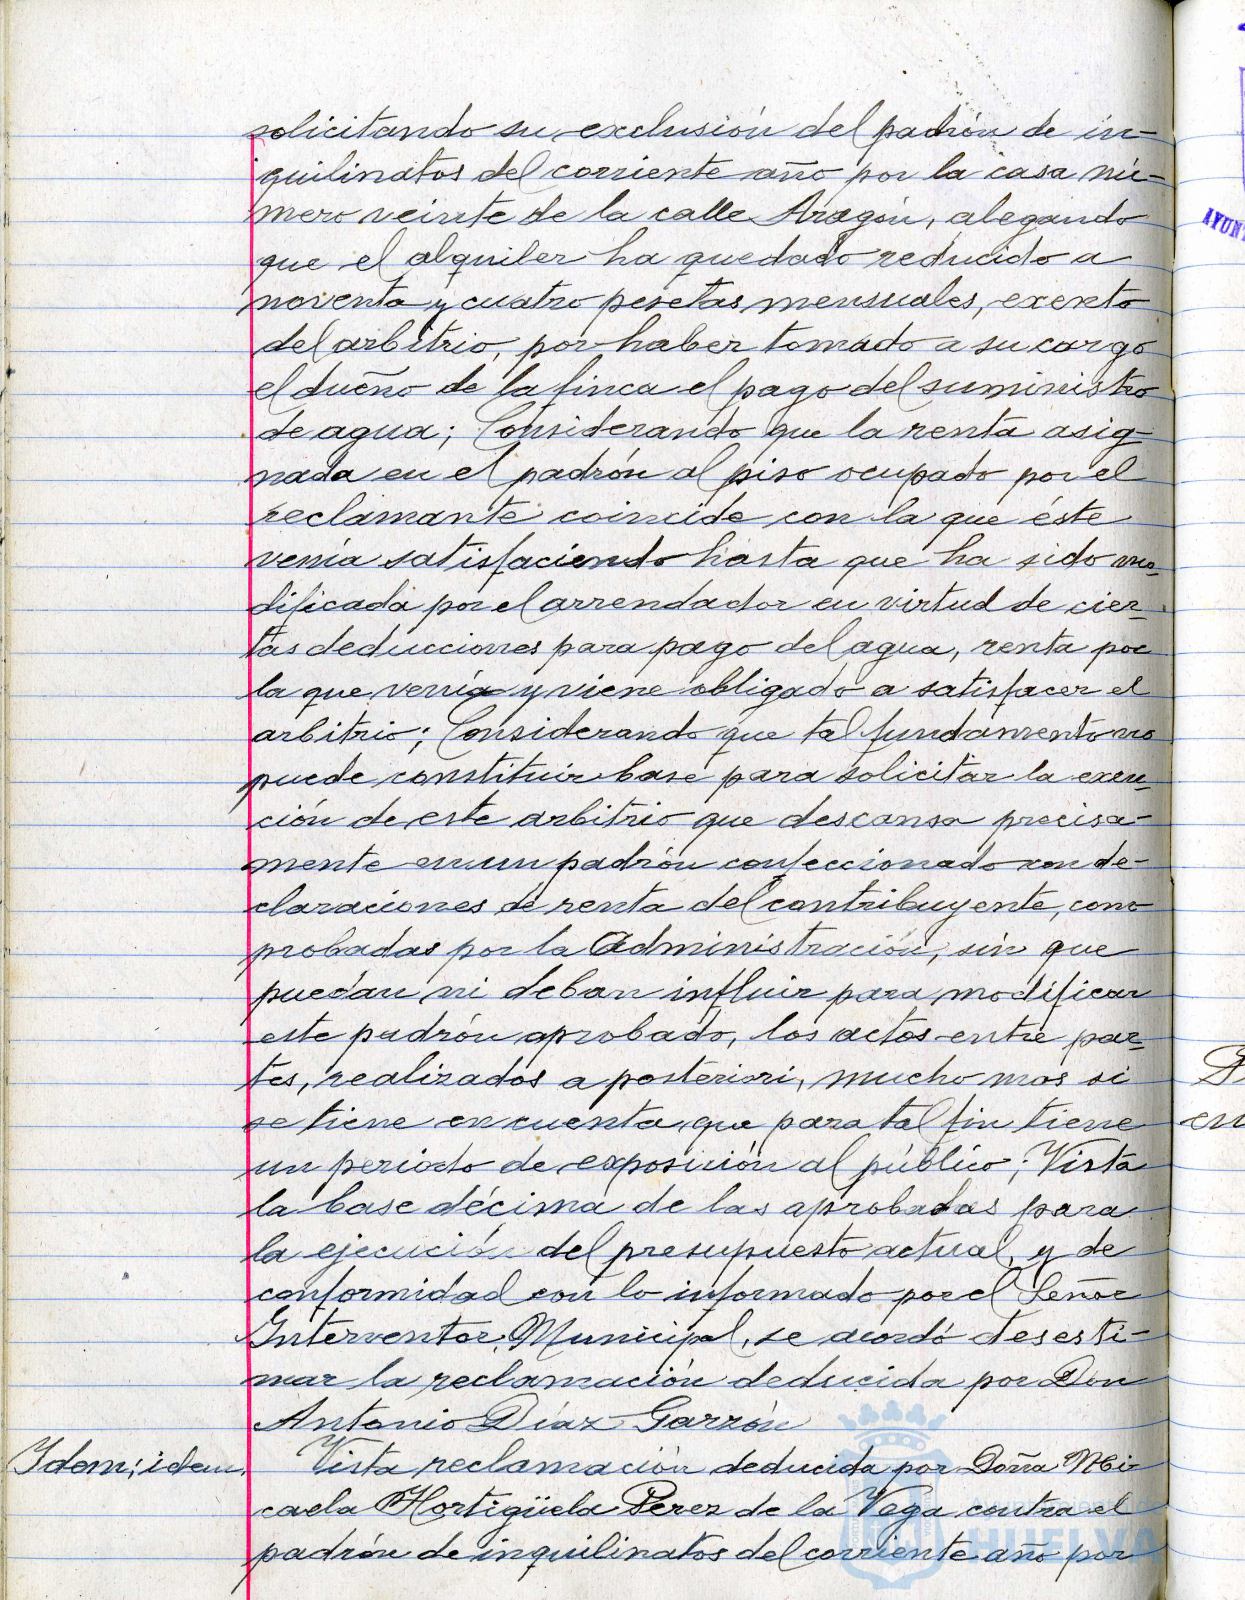 solicitando su exclusión del padrón de in-
quilinatos del corriente año por la casa nú-
mero veinte de la calle Aragón, alegando
que el alquiler ha quedado reducido a
noventa y cuatro pesetas mensuales, exento
del arbitrio, por haber tomado a su cargo
el dueño de la finca el pago del suministro
de agua; Considerando que la renta asig-
nada en el padrón al piso ocupado por el
reclamante coincide con la que éste
venía satisfaciendo hasta que ha sido mo-
dificada por el arrendador en virtud de cier-
tas deducciones para pago del agua, renta por
la que venía y viene obligado a satisfacer el
arbitrio; Considerando que tal fundamento no
puede constituir base para solicitar la exen-
ción de este arbitrio que descansa precisa-
mente en un padrón confeccionado con de-
claraciones de renta del contribuyente, com-
probadas por la Administración, sin que
puedan ni deban influir para modificar
este padrón aprobado, los actos entre par-
tes, realizados a posteriori, mucho mas si
se tiene en cuenta que para tal fin tiene
un periodo de exposición al público; Vista
la base décima de las aprobadas para
la ejecución del presupuesto actual, y de
conformidad con lo informado por el Señor
Interventor Municipal, se acordó desesti-
mar la reclamación deducida por Don
Antonio Díaz Garzón
Idem; idem. Vista reclamación deducida por Doña Mi-
caela Hortigüela Perez de la Vega contra el
padrón de inquilinatos del corriente año por
HUELVA
AYUNT
en